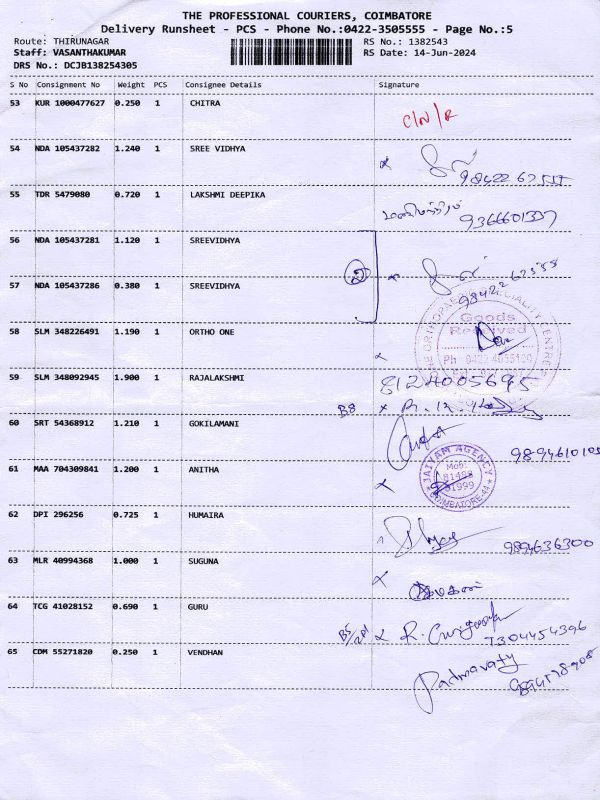 THE PROFESSIONAL COURIERS, COIMBATORE
Delivery Runsheet - PCS - Phone No.:0422-3505555 - Page No.:5
Route: THIRUNAGAR
RS No.: 1382543
Staff: VASANTHAKUMAR
RS Date: 14-Jun-2024
DRS No.: DCJB138254305
S No Consignment No Weight PCS Consignee Details Signature
53 KUR 1000477627 0.250 1 CHITRA
C/N/R
54 NDA 105437282 1.240 1 SREE VIDHYA
55 TDR 5479080 0.720 1 LAKSHMI DEEPIKA
56 NDA 105437281 1.120 1 SREEVIDHYA
57 NDA 105437286 0.380 1 SREEVIDHYA
58 SLM 348226491 1.190 1 ORTHO ONE
Goods
Received
59 SLM 348092945 1.900 1 RAJALAKSHMI
8124005695
60 SRT 54368912 1.210 1 GOKILAMANI
61 MAA 704309841 1.200 1 ANITHA
JAIYAM AGENCY
COIMBATORE-44
62 DPI 296256 0.725 1 HUMAIRA
9894636300
63 MLR 40994368 1.000 1 SUGUNA
64 TCG 41028152 0.690 1 GURU
7304454396
65 CDM 55271820 0.250 1 VENDHAN
Padmavaty